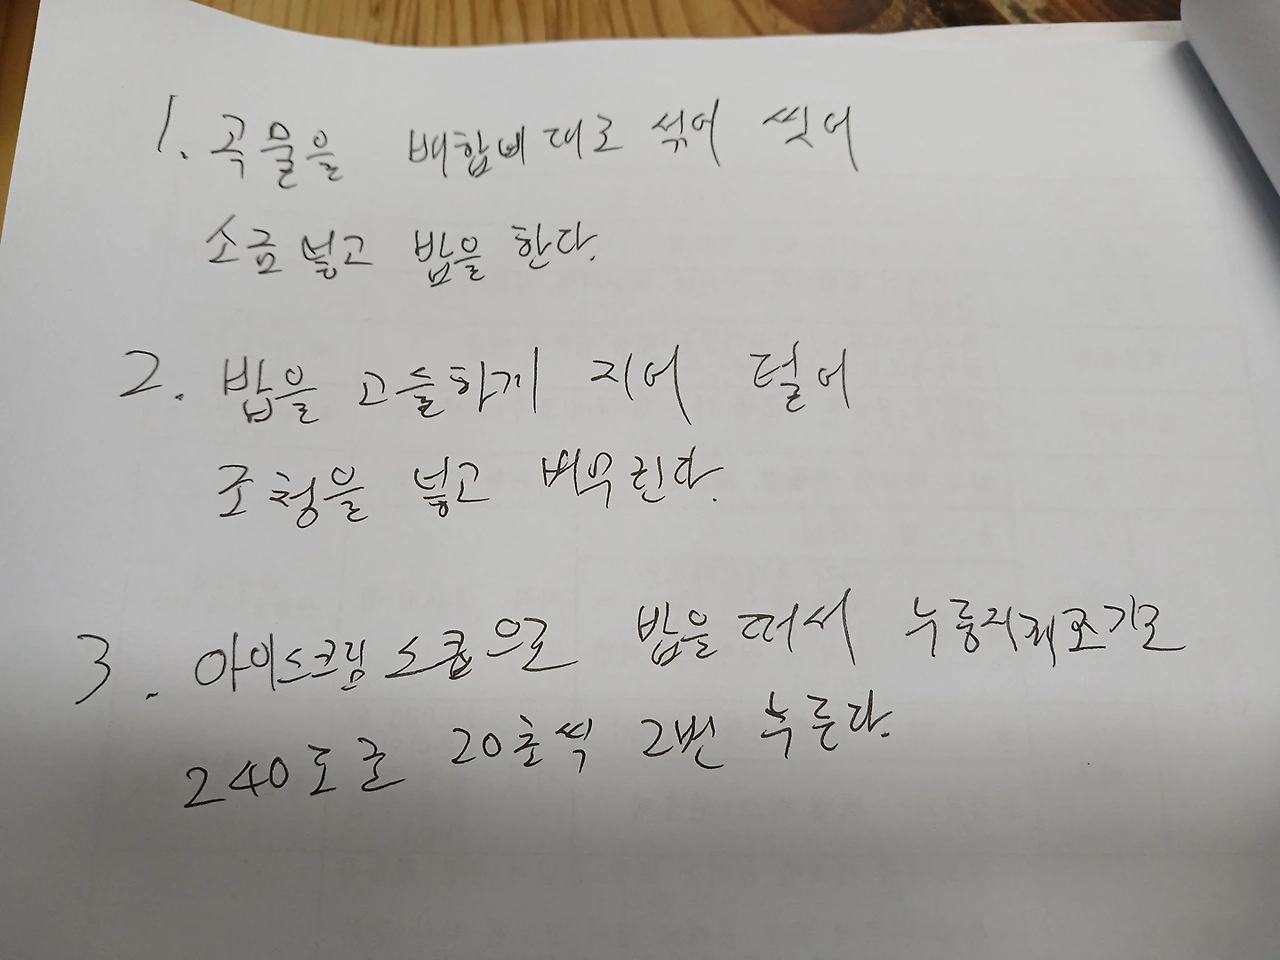 1. 곡물을 배합비대로 섞어 씻어
소금넣고 밥을 한다.
2. 밥을 고슬하게 지어 덜어
조청을 넣고 버무린다.
3. 아이스크림스쿱으로 밥을 떠서 누룽지제조기로
240도로 20초씩 2번 누른다.